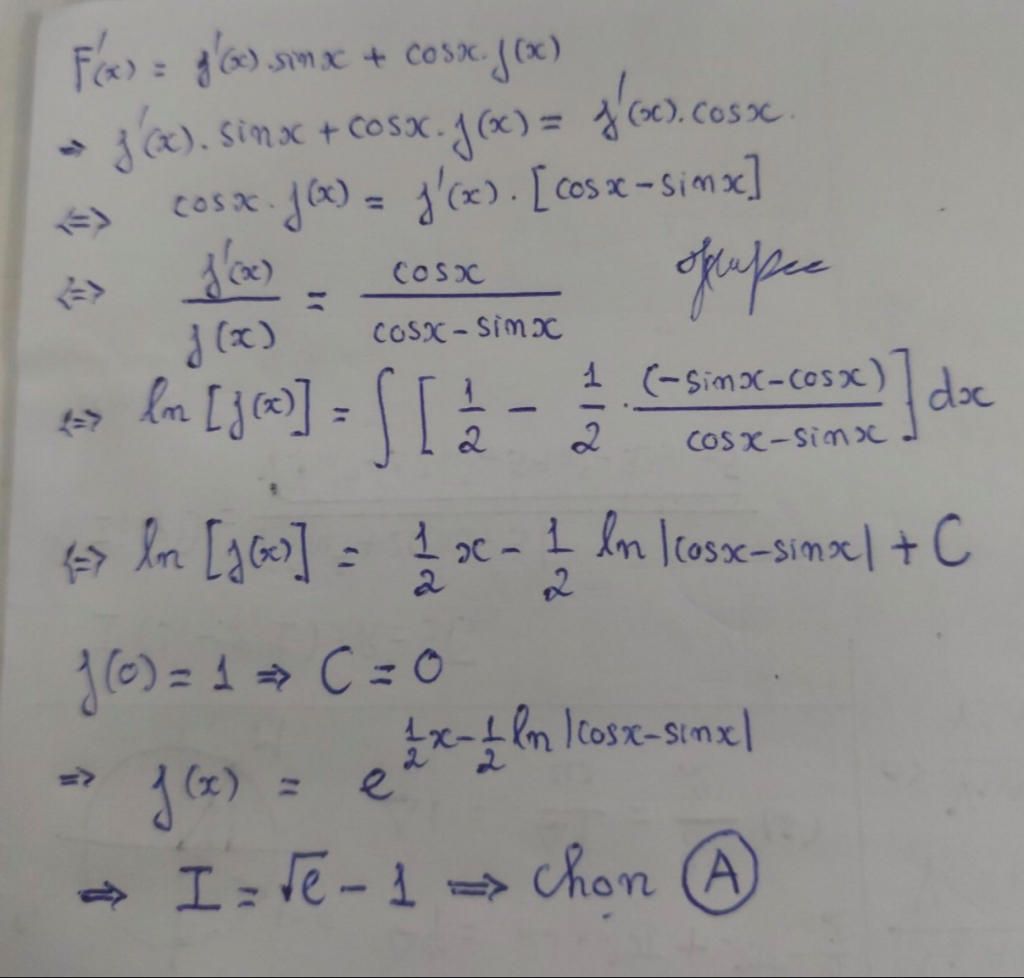 F'(x) = f'(x).sinx + cosx.f(x)
⇒ f'(x).sinx + cosx.f(x) = f'(x).cosx.
⇔ cosx.f(x) = f'(x).[cosx-sinx]
⇔ f'(x)/f(x) = cosx/(cosx-sinx)
⇔ ln [f(x)] = ∫ [1/2 - 1/2 . (-sinx-cosx)/(cosx-sinx)] dx
⇔ ln [f(x)] = 1/2 x - 1/2 ln |cosx-sinx| + C
f(0) = 1 ⇒ C = 0
⇒ f(x) = e^(1/2 x - 1/2 ln |cosx-sinx|)
⇒ I = √e - 1 ⇒ chọn A